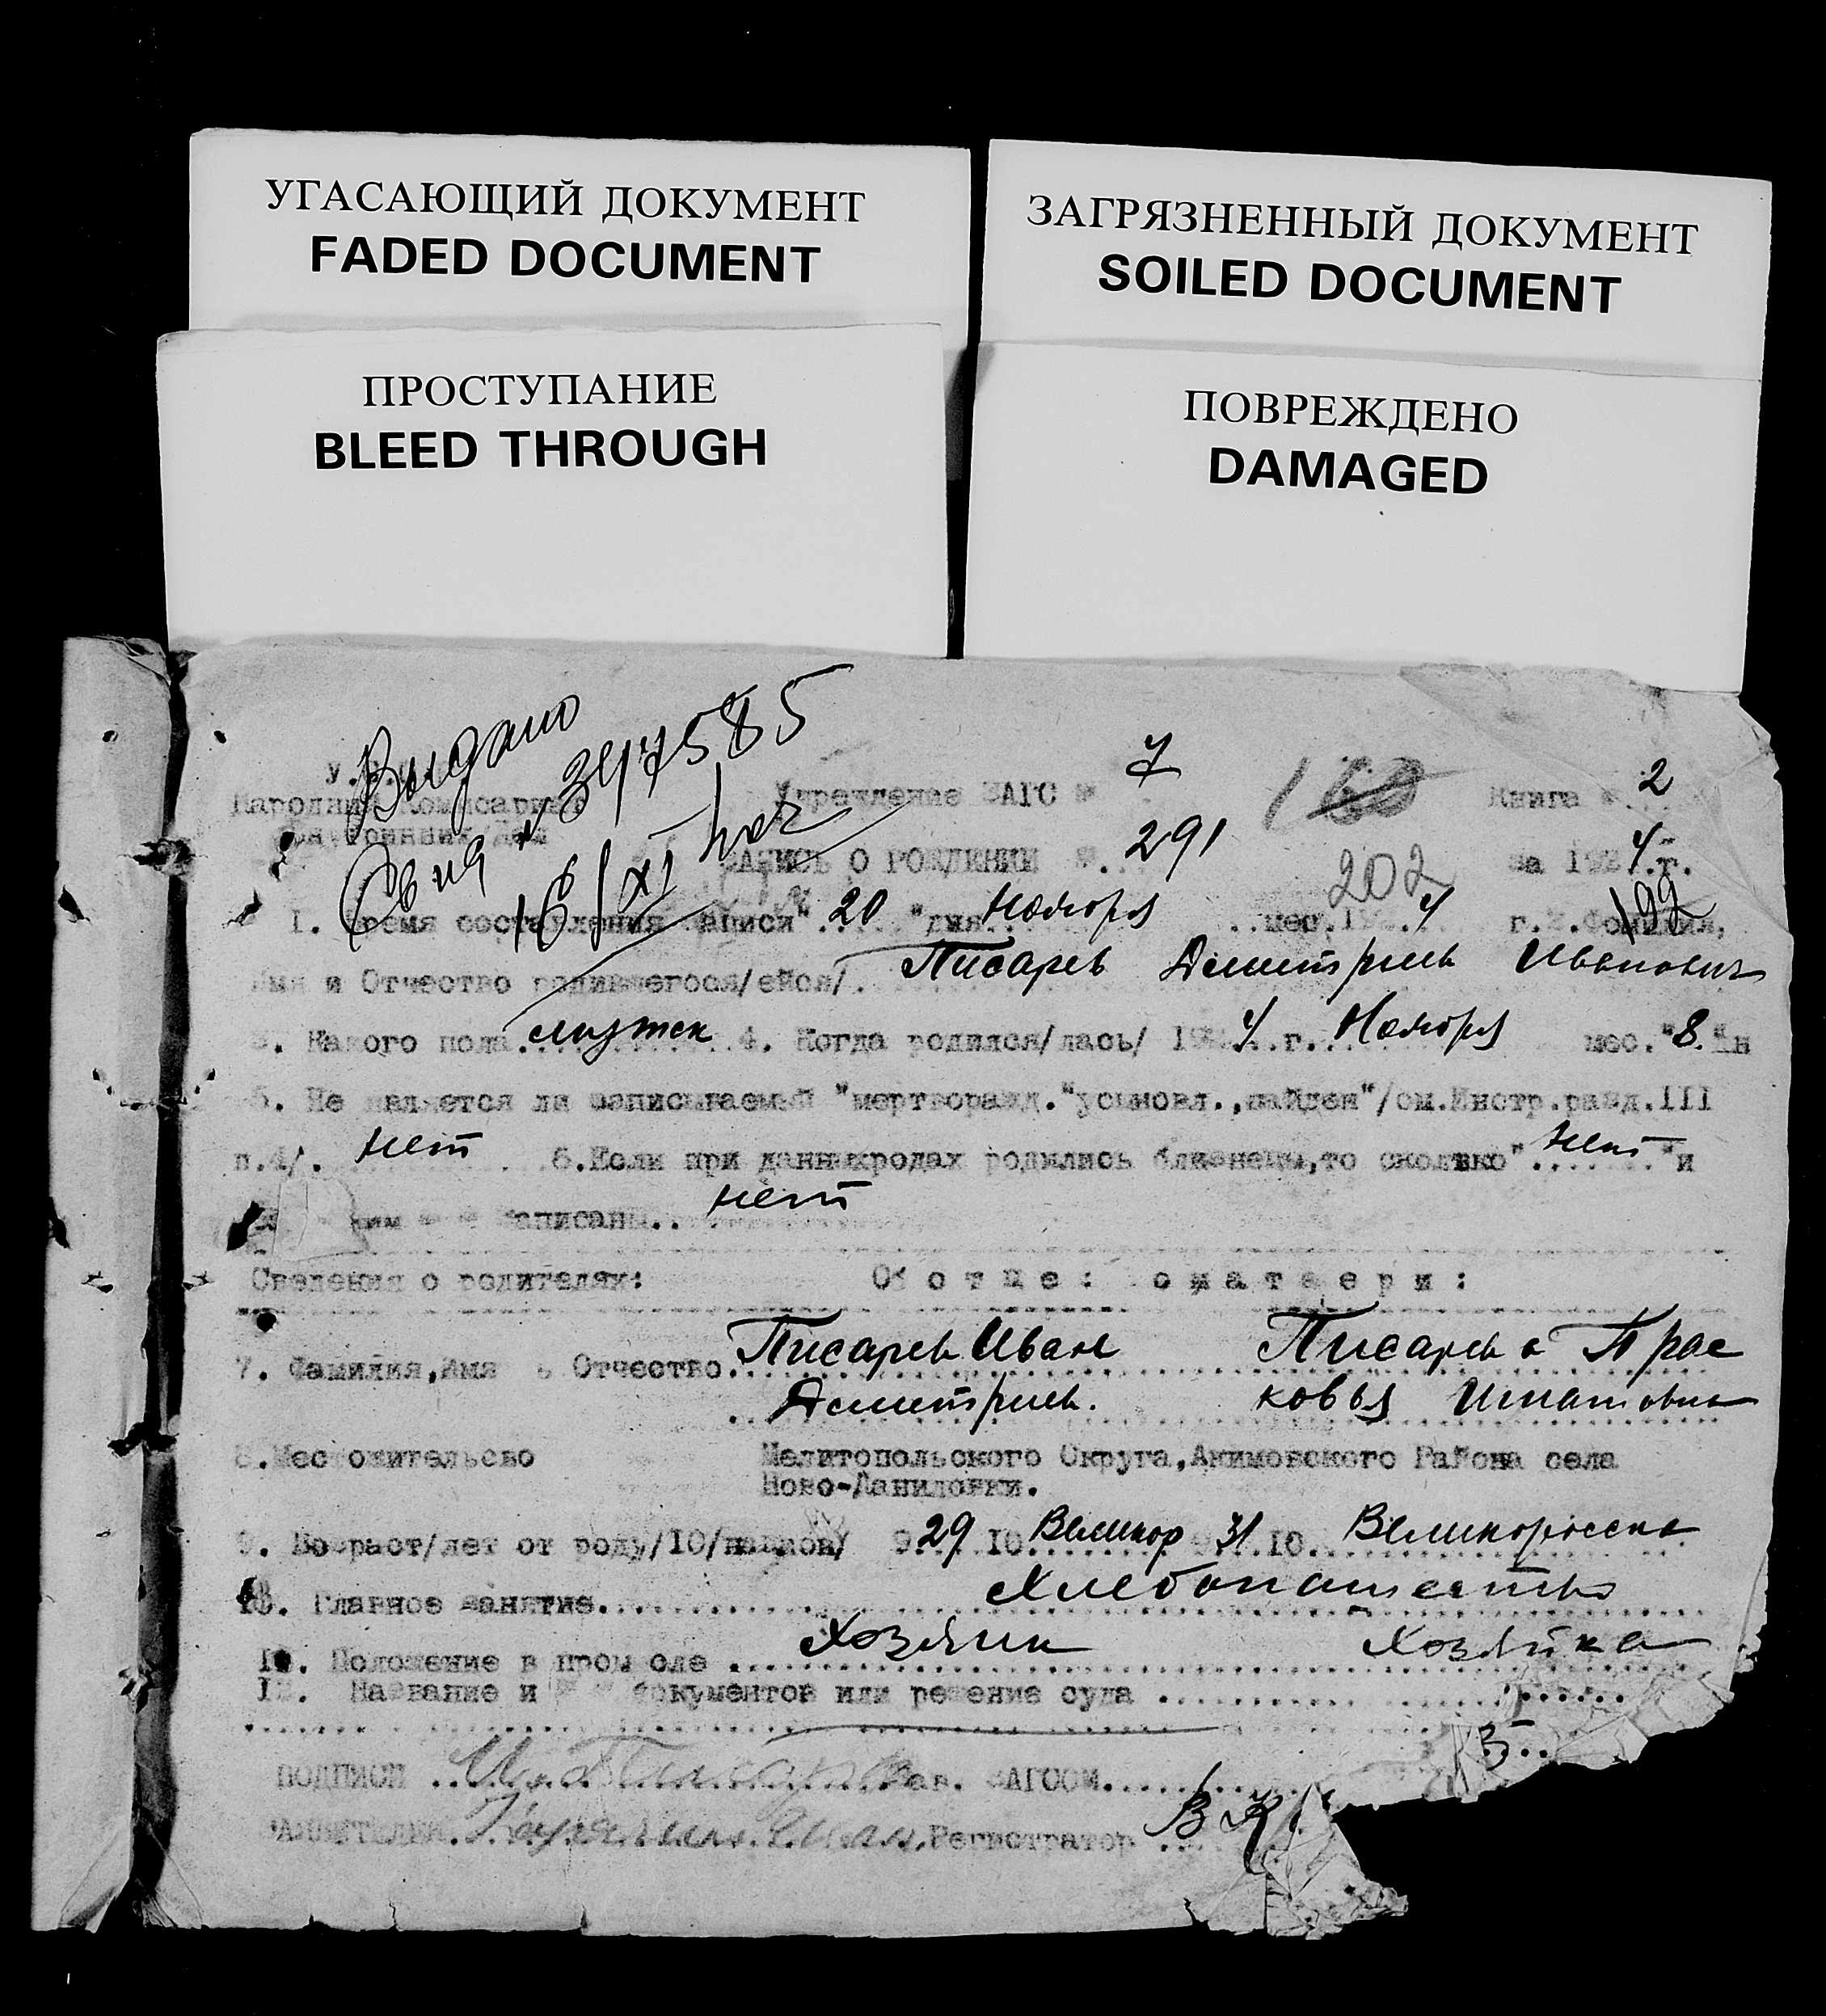 УГАСАЮЩИЙ ДОКУМЕНТ
FADED DOCUMENT
ЗАГРЯЗНЕННЫЙ ДОКУМЕНТ
SOILED DOCUMENT
ПРОСТУПАНИЕ
BLEED THROUGH
ПОВРЕЖДЕНО
DAMAGED
Выдано
16/XI
Учреждение ЗАГС № 7
Книга № 2
ЗАПИСЬ О РОЖДЕНИИ №. 291
202
за 192 4 г.
192
1. Время составления записи "20 "дня Ноября мес. 192 4 г. 2. Фамилия,
Имя и Отчество родившегося/ейся/. Писарев Дмитриев Иванович
3. Какого пола мужск 4. Когда родился/лась/ 192 4 г. Ноября мес. "8."
5. Не является ли записываемый "мертворожд."усыновл.,найден"/см.Инстр.разд.III
п.4/. нет 6.Если при данных родах родились близнецы,то сколько" нет "и
записаны.. нет
Сведения о родителях: Об о т ц е : о м а т е р и :
7. Фамилия,Имя Отчество. Писарев Иван Писарева Прас
Дмитриев. ковья Игнатовна
8.Местожительство Мелитопольского Округа,Акимовского Района села
Ново-Даниловки.
9. Возраст/лет от роду/10/национ/ 9. 29 10. Великор 31 10. Великоросска
Главное занятие. Хлебопашество
Положение в промысле Хозяин Хозяйка
Название и документов или решение суда
ПОДПИСИ И. Писарев Зав. ЗАГСОМ.
Регистратор